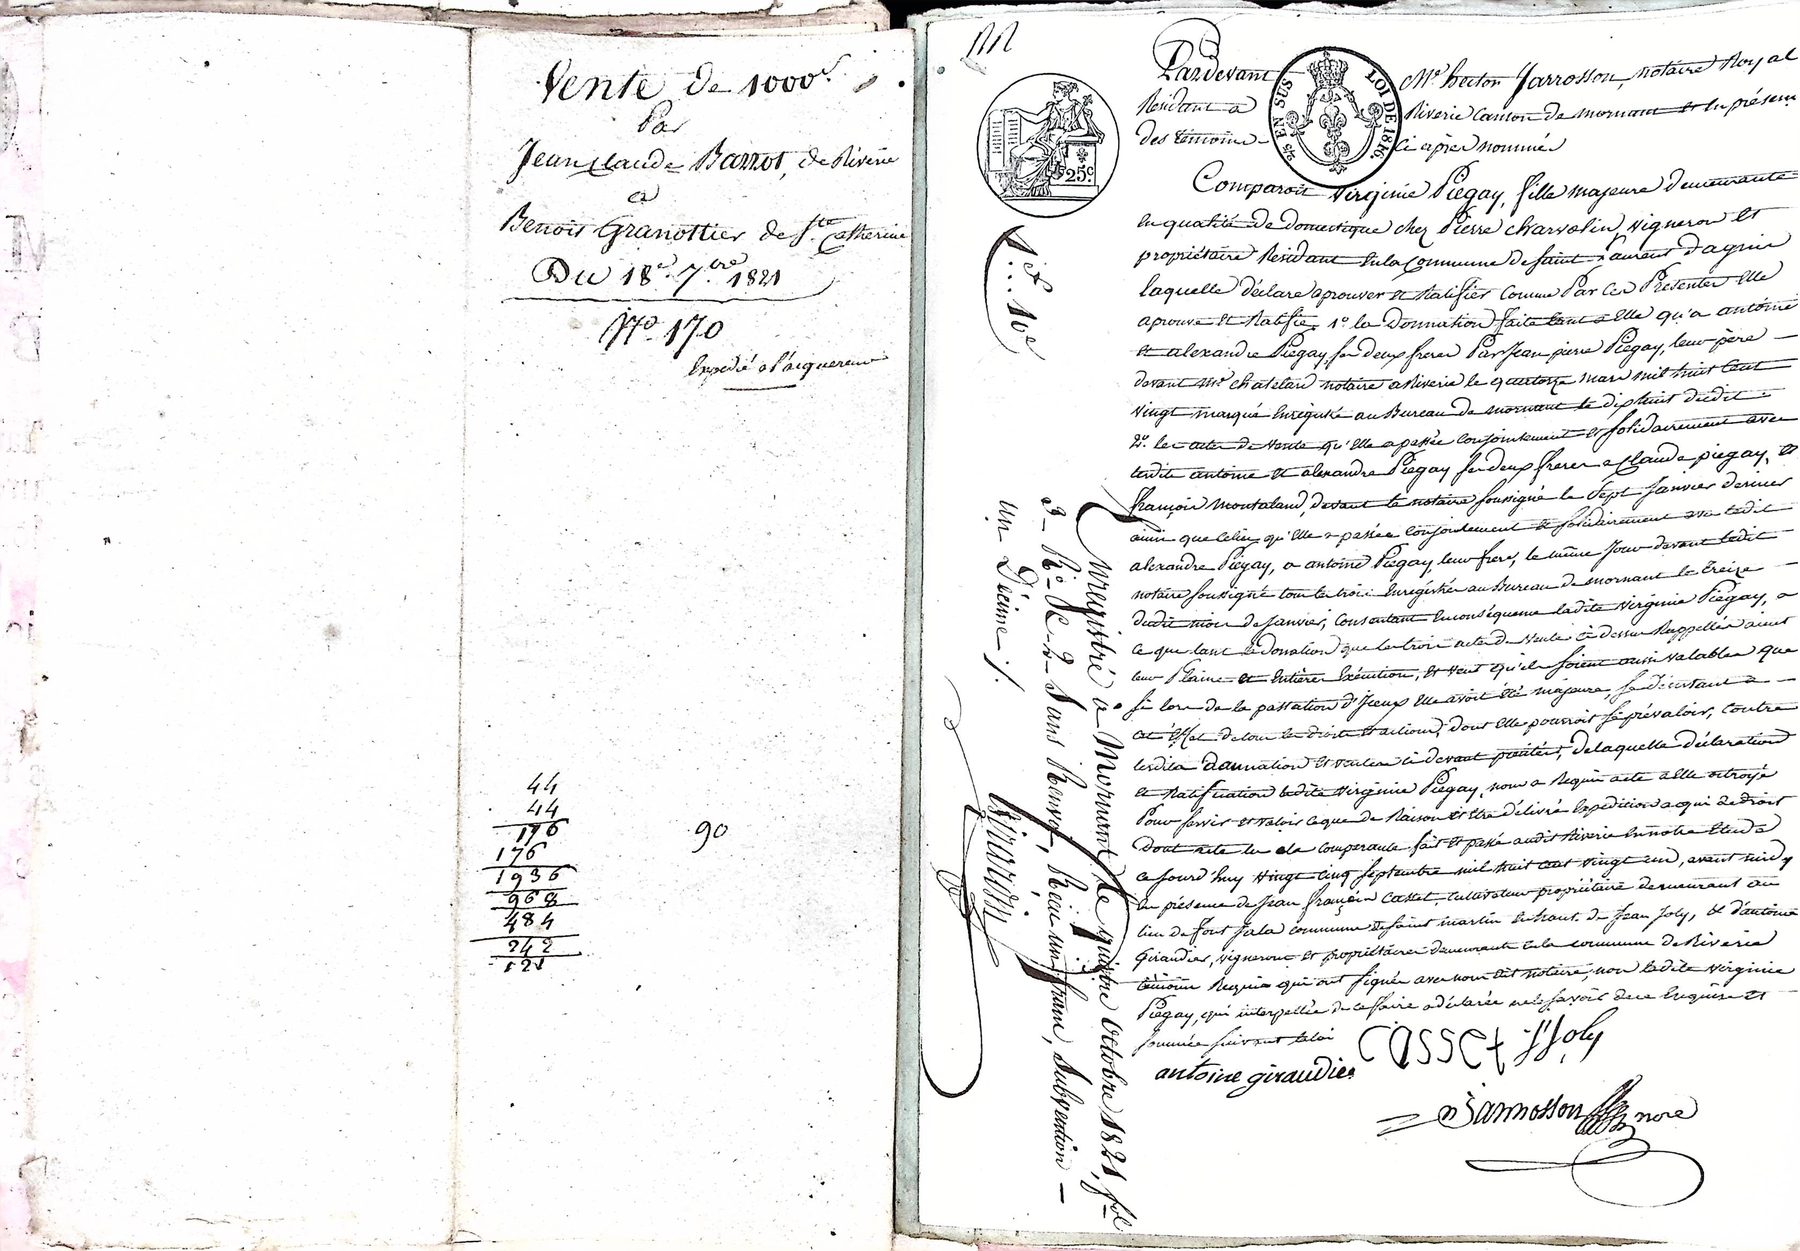 Vente de 1000f.
Par
Jean Claude Barrot, de Riverie
a
Benoit Granottier de Ste. Catherine
Du 18e. 7bre. 1821
No. 170
Expedié a l'acquereur
44
44
176
176
1936
968
484
242
121
90
25c.
EN SUS
LOI DE 1816.
Pardevant Me. hector Jarrosson, notaire Royal
Résidant a Riverie canton de mornant et en présence
des témoins ci après nommés
Comparoit virginie Piégay, fille majeure demeurante
en qualité de domestique chez Pierre charvolin, vigneron et
propriétaire Résidant en la Commune de saint Laurent d'agnie
laquelle déclare aprouver et Ratifier comme Par ces Présentes elle
aprouve et Ratifie, 1o. la Donnation faite tant a elle qu'a antoine
et alexandre Piégay, ses deux freres Par Jean pierre Piégay, leur père
devant Me. chatelard notaire a Riverie le quatorze mars mil huit cent
vingt marqué enregistré au Bureau de mornant le dix huit dudit
2o. les actes de vente qu'elle a passée conjointement et solidairement avec
lesdits antoine et alexandre Piégay ses deux freres a Claude piégay, et
françois montaland, devant le notaire soussigné le sept janvier dernier
ainsi que celui qu'elle a passée conjointement et solidairement avec ledit
alexandre Piégay, a antoine Piégay, leur frere, le même jour devant ledit
notaire soussigné tous les trois enrégistrés au Bureau de mornant le treize
dudit mois de janvier, consentant en conséquence ladite virginie Piégay, a
ce que tant la donation que les trois actes de vente ci dessus Rappellés aient
leur Pleine et entière exécution, et veut qu'ils soient aussi valables que
si lors de la passation d'iceux elle avoit été majeure, se désistant a
cet effet de tous les droits et actions, dont elle pourroit se prévaloir, contre
lesdits donnation et ventes ci devant précités, de laquelle déclaration
et Ratification ladite virginie Piégay, nous a Requis acte a elle octroyé
Pour servir et valoir ce que de Raison et etre délivré expédition a qui de droit
dont acte lu a la comparante fait et passé audit Riverie en notre etude
ce jourd'huy vingt cinq septembre mil huit cent vingt un, avant midy
en présence de jean françois casset, cultivateur propriétaire demeurant au
lieu de font sala commune de saint martin en haut, de jean joly, et d'antoine
Giraudier, vignerons et propriétaires demeurants en la commune de Riverie
témoins Requis qui ont signés avec nous dit notaire, non ladite virginie
Piégay, qui interpellée de ce faire a déclarée ne le savoir de ce enquise et
sommée suivant la loi
Casset J Joly
antoine giraudier
Jarrosson nore
1f..10c
Enregistré a Mornant le quatre octobre 1821, fol.
3 Ro. Ce. 2 sans Renvoi, Reçu un franc, subvention
un Décime.